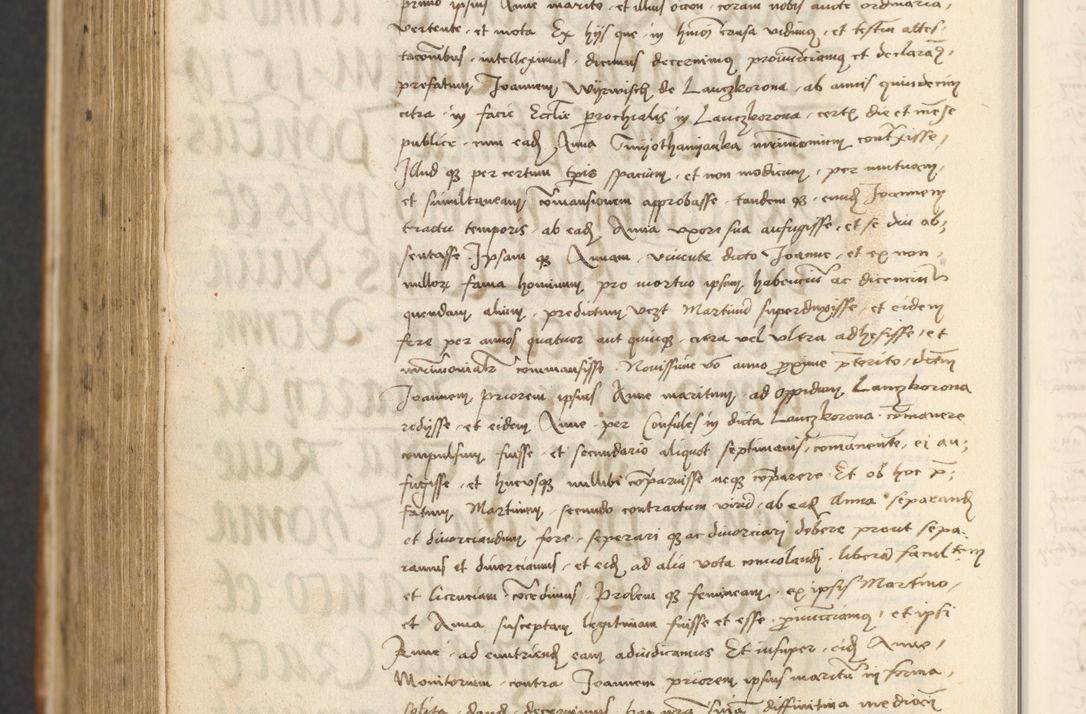 primo ipsius Anne marito, et illius occasione coram nobis aucte ordinaria,
vertente, et mota Ex hijs que, in hmoi causa vidimus, et testium attes-
tacombus, intelleximus, dicimus decernimus pronunciamus et declaramus,
prefatum Joannem Wyrwisch de Lanczkorona, ab annis quindecim
citra, in facie Ecclie prochialis in Lanczkorona, certis die et mese
publice, cum eadem Anna Timothamyanka mrimonium contraxisse,
Illud que per certum tpris spacium, et non modicum, per mutuam,
et simultaneam, comansionem approbasse, tandem que, eundem Joannem
tractu temporis, ab eadem Anna uxore sua aufugisse, et se diu ab-
sentasse. Ipsam que Annam, vivente dicto Joanne, et ex non-
nullorum fama hominum, pro mortuo ipsum habencium ac dicencium
quendam alium, predictum vezt Martinum superduxisse, et eidem
fere per annos quatuor aut quinque, citra vel ultra adhesisse, et
mrimonialiter commansisse. Novissime vero anno proxime preterito, dictum
Joannem priorem ipsius Anne maritum, ad oppidum Lanczkorona
redijsse, et eidem Anne, per Consules in dicta Lanczkorona, comanere
compulsum fuisse, et secundario aliquot septimanis, comanente, ei au-
fugisse, et hucusque nullibi comparuisse neque comparere. Et ob hoc pre-
fatum Martinum, secundo contractum virum, ab eadem Anna separandum
et divorciandum fore, seperari que ac divorciari debere prout sepa-
ramus et divorciamus, et eidem ad alia vota convolandi, liberam facultatem
et licenciam concedimus. Prolem que femineam, ex ipsis Martino,
et Anna susceptam legitimam fuisse et esse, pronunciamus, et ipsi
Anne, ad enutriendum eam adiudicamus Et insuper, eidem Anne,
Monitorium, contra Joannem priorem ipsius maritum in forma,
solita, dandum decernimus hac nostra sentencia diffinitiva mediante